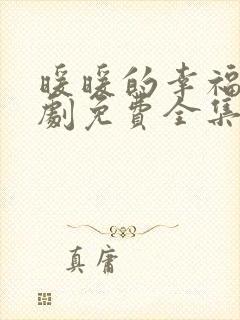 暖暖的幸福
劇免費全集
真庸